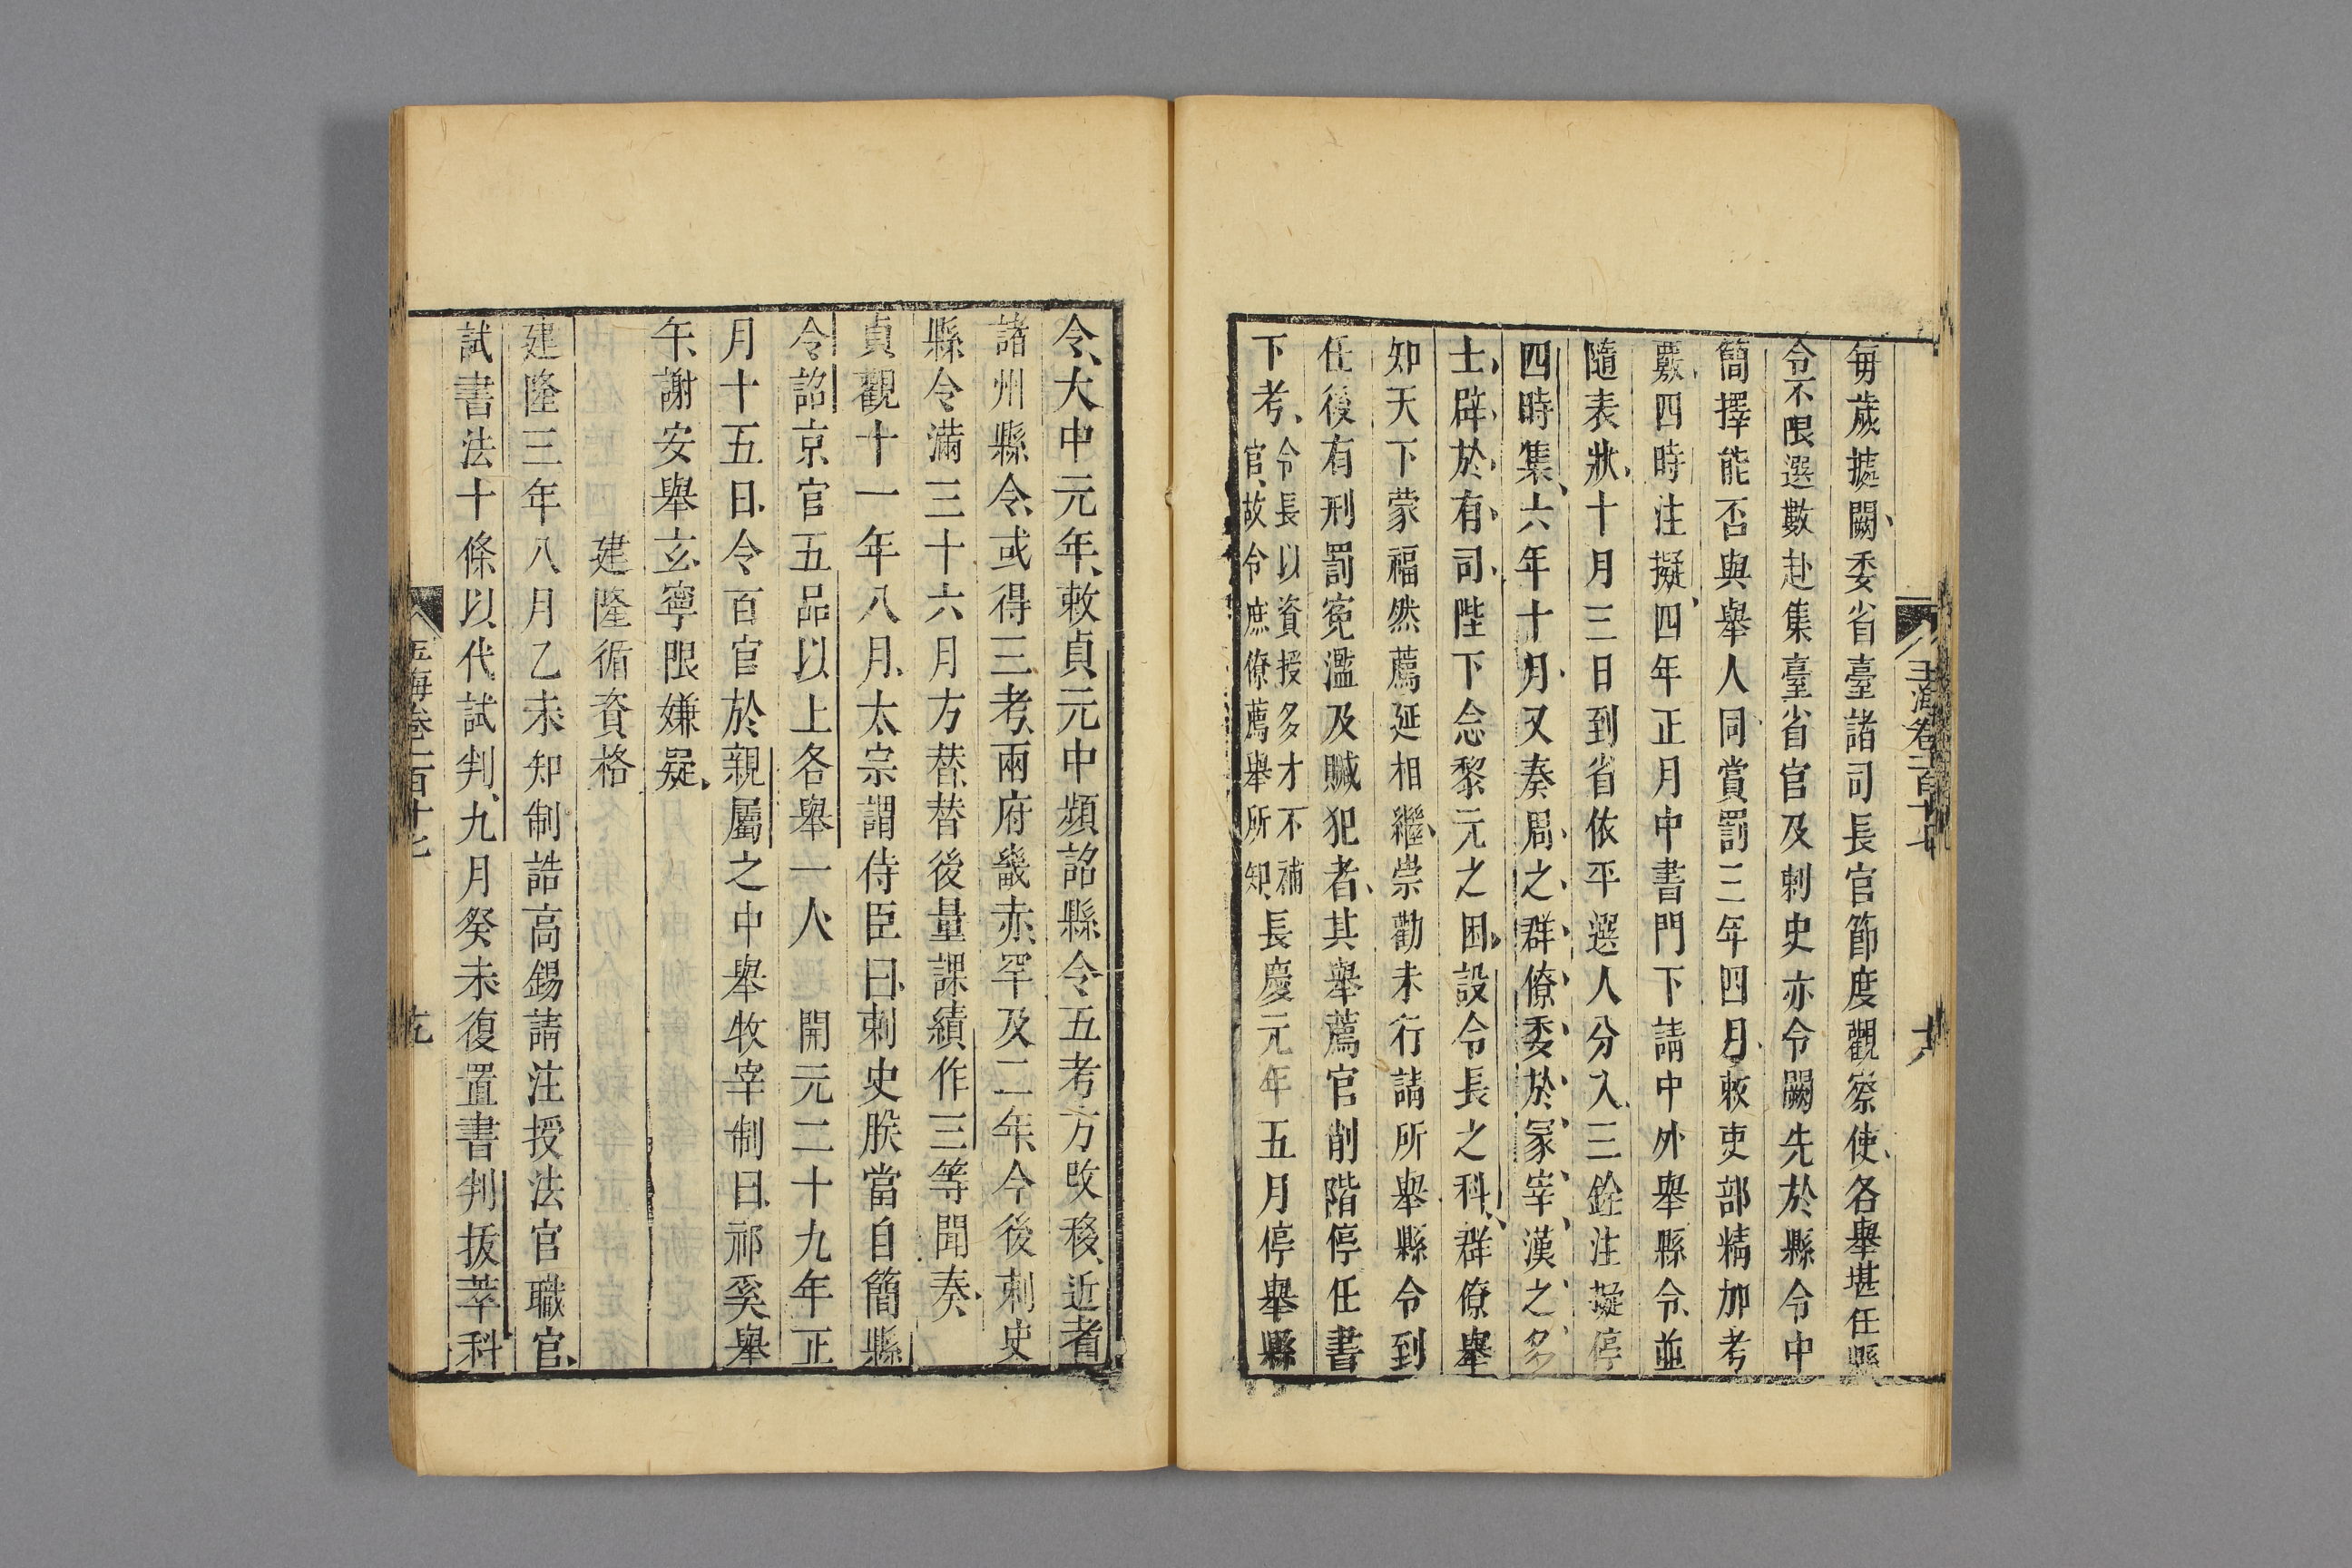 玉海卷一百十七
十八
每歲㨿闕委省臺諸司長官節度觀察使各舉堪任縣
令不限選數赴集臺省官及刺史亦令闕先於縣令中
簡擇能否與舉人同賞罰三年四月敕吏部精加考
覈四時注擬四年正月中書門下請中外舉縣令並
隨表狀十月三日到省依平選人分入三銓注擬停
四時集六年十月又奏周之群僚委於冢宰漢之多
士辟於有司陛下念黎元之困設令長之科群僚舉
知天下蒙福然薦延相繼崇勸未行請所舉縣令到
任後有刑罰寃濫及贓犯者其舉薦官削階停任書
下考令長以資授多才不補官故令庶僚薦舉所知長慶元年五月停舉縣
令大中元年敕貞元中頻詔縣令五考方改移近者
諸州縣令或得三考兩府畿赤罕及二年今後刺史
縣令滿三十六月方替替後量課績作三等聞奏
貞觀十一年八月太宗謂侍臣曰刺史朕當自簡縣
令詔京官五品以上各舉一人 開元二十九年正
月十五日令百官於親屬之中舉牧宰制曰祁奚舉
午謝安舉玄寧限嫌疑
建隆循資格
建隆三年八月乙未知制誥高錫請注授法官職官
試書法十條以代試判九月癸未復置書判拔萃科
玉海卷一百十七
十九